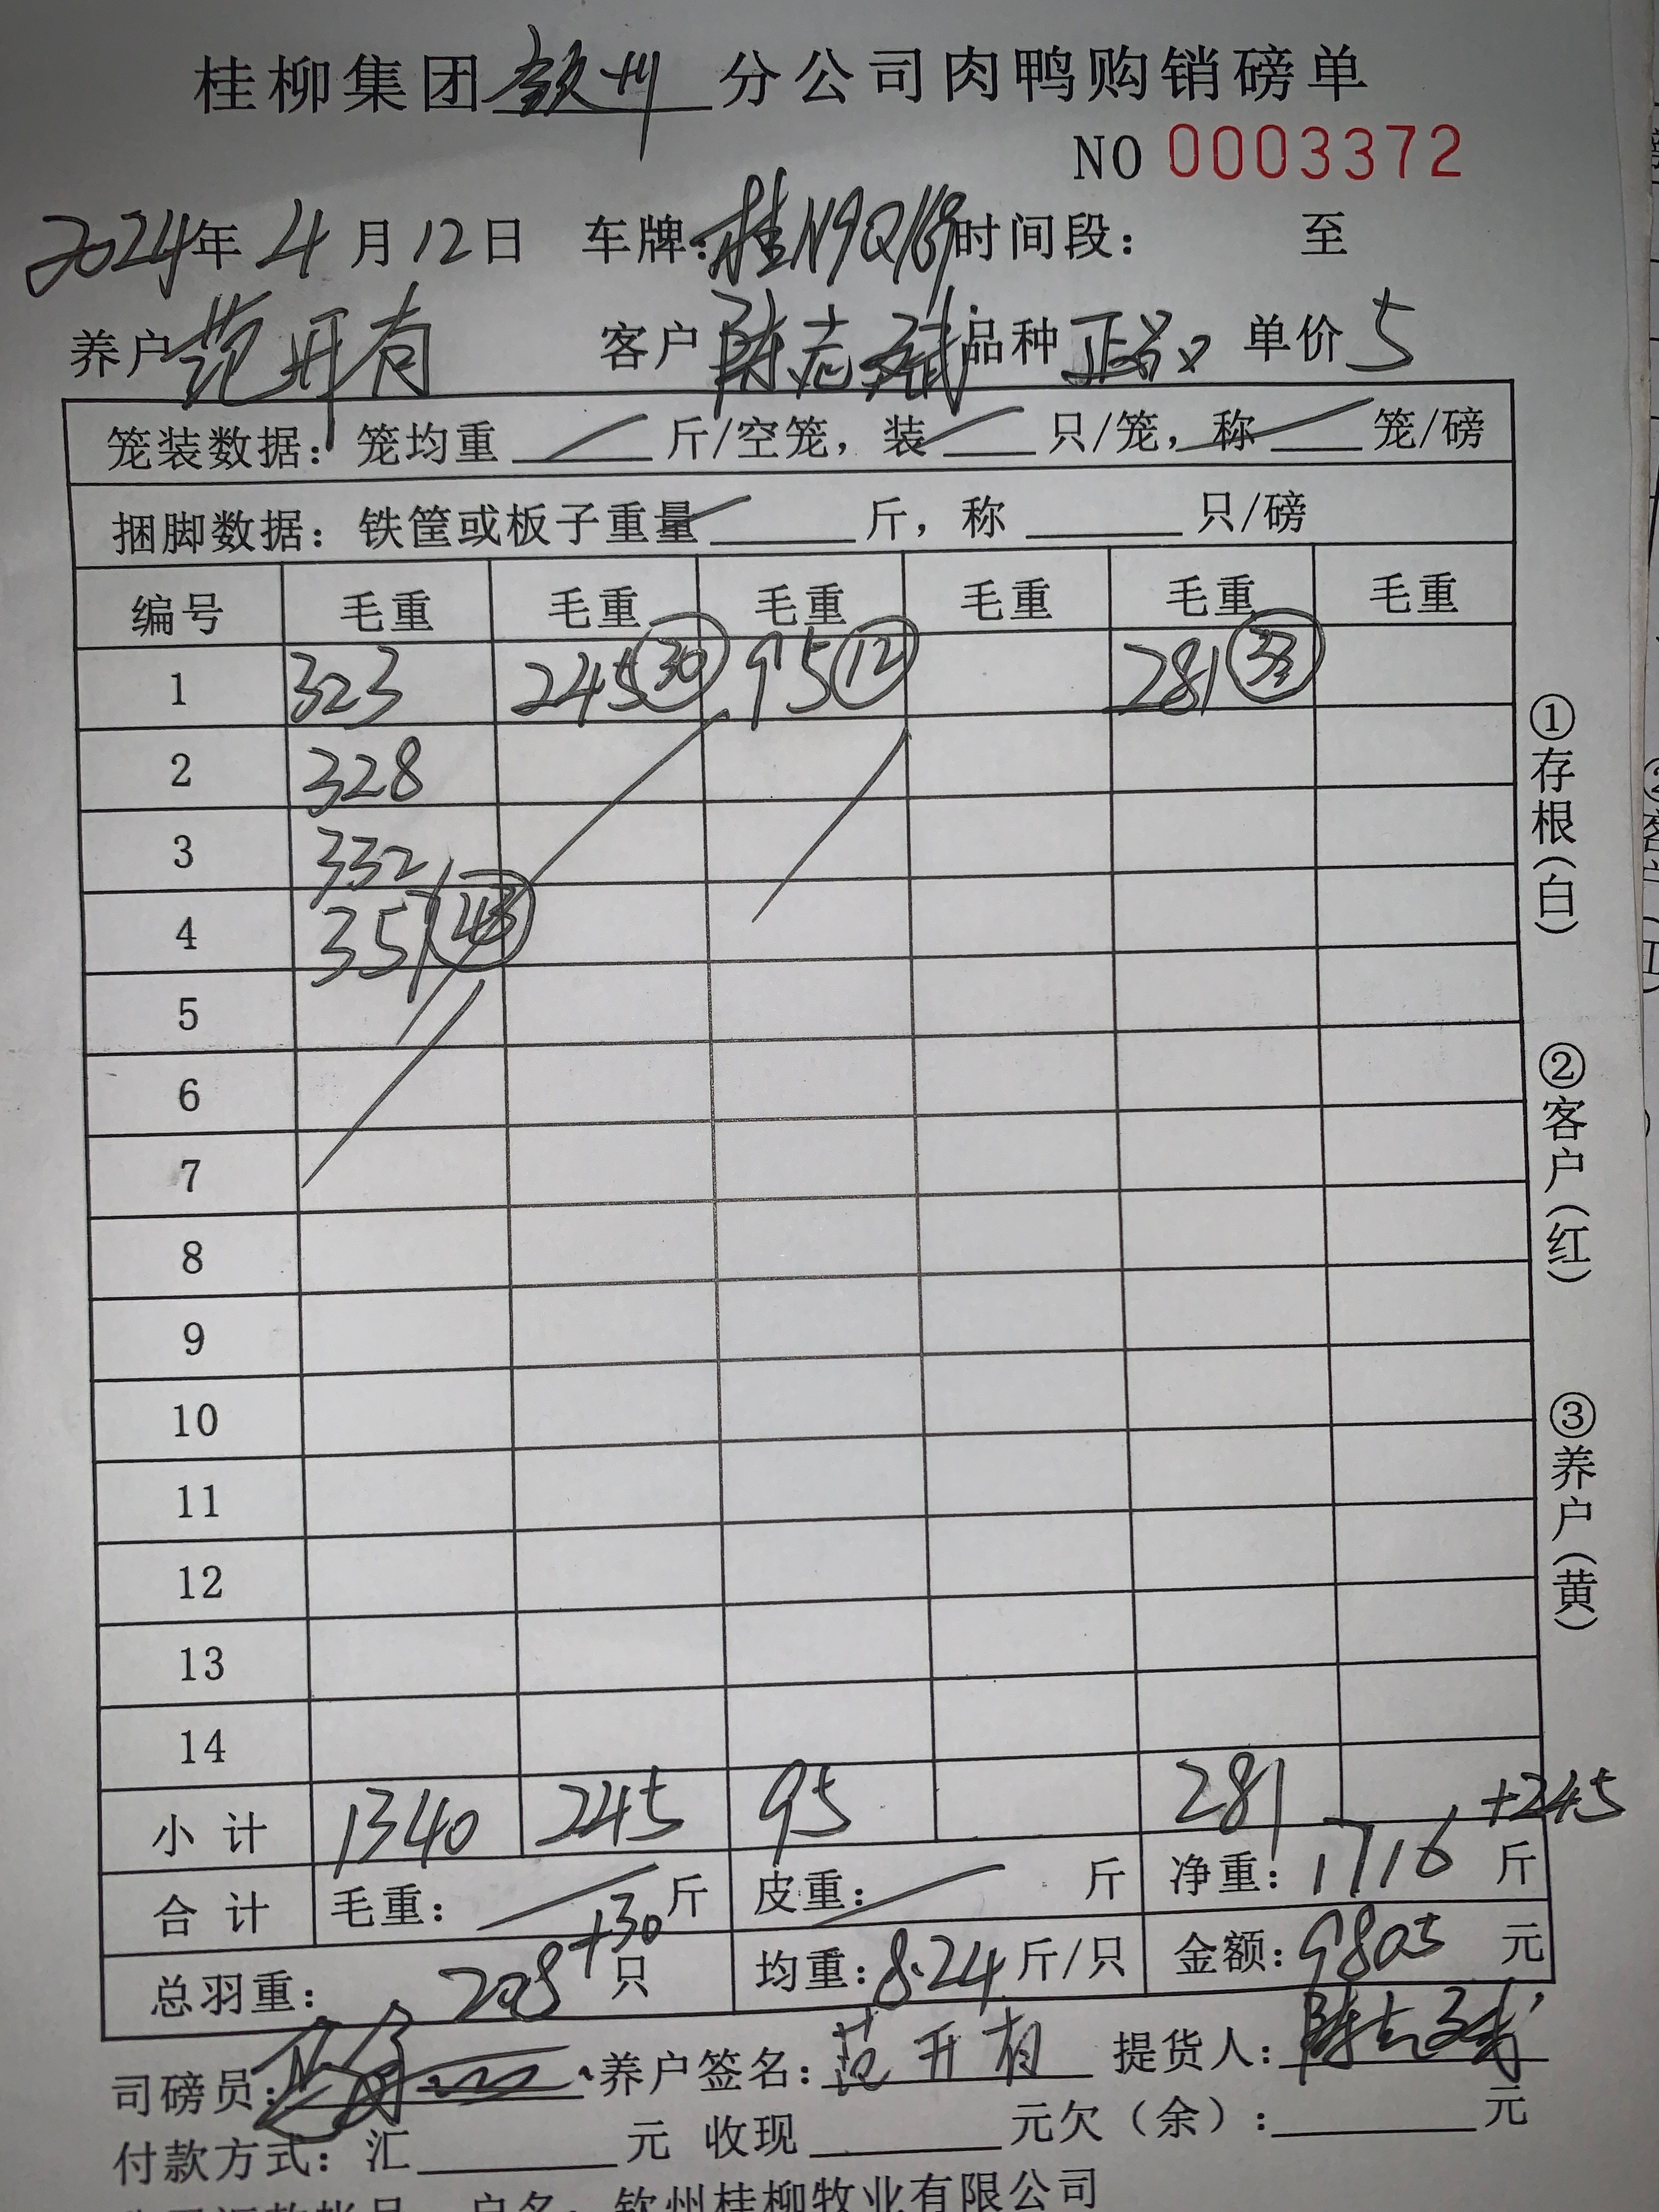 桂柳集团钦州分公司肉鸭购销磅单
NO 0003372
2024年4月12日 车牌:桂N9Q169时间段: 至
养户范开有 客户陈志斌品种正品 单价5
笼装数据: 笼均重 斤/空笼, 装 只/笼, 称 笼/磅
捆脚数据: 铁筐或板子重量 斤, 称 只/磅
编号 毛重 毛重 毛重 毛重 毛重 毛重
1 323 245 30 95 12 281 33
2 328
3 332
4 351 43
5
6
7
8
9
10
11
12
13
14
小 计 1340 245 95 281 +245
合 计 毛重: 斤 皮重: 斤 净重: 1716 斤
总羽重: 208+30 只 均重: 8.24 斤/只 金额: 9805 元
司磅员: 养户签名: 范开有 提货人: 陈志斌
付款方式: 汇 元 收现 元欠(余): 元
户名: 钦州桂柳牧业有限公司
①存根(白)
②客户(红)
③养户(黄)